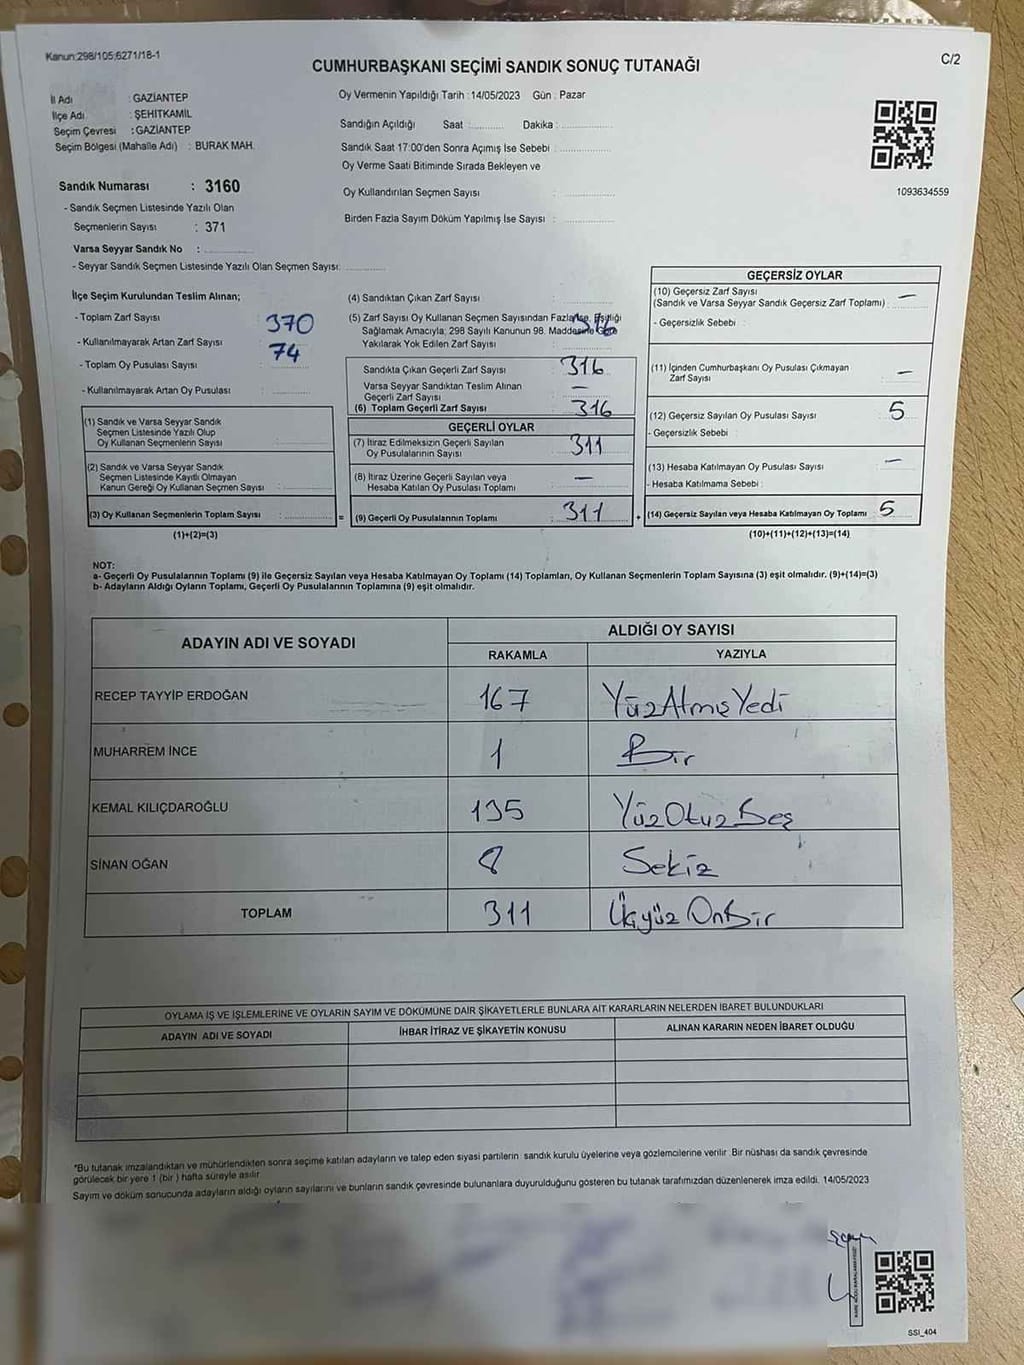 Kanun:298/105;6271/18-1
C/2
CUMHURBAŞKANI SEÇİMİ SANDIK SONUÇ TUTANAĞI
İl Adı : GAZİANTEP
İlçe Adı : ŞEHİTKAMİL
Seçim Çevresi : GAZİANTEP
Seçim Bölgesi (Mahalle Adı) : BURAK MAH.
Oy Vermenin Yapıldığı Tarih : 14/05/2023 Gün : Pazar
Sandığın Açıldığı Saat : Dakika :
Sandık Saat 17:00'den Sonra Açımış İse Sebebi :
Oy Verme Saati Bitiminde Sırada Bekleyen ve
Oy Kullandırılan Seçmen Sayısı :
Birden Fazla Sayım Döküm Yapılmış İse Sayısı :
1093634559
Sandık Numarası : 3160
- Sandık Seçmen Listesinde Yazılı Olan
Seçmenlerin Sayısı : 371
Varsa Seyyar Sandık No :
- Seyyar Sandık Seçmen Listesinde Yazılı Olan Seçmen Sayısı:
İlçe Seçim Kurulundan Teslim Alınan;
- Toplam Zarf Sayısı : 370
- Kullanılmayarak Artan Zarf Sayısı : 74
- Toplam Oy Pusulası Sayısı :
- Kullanılmayarak Artan Oy Pusulası :
(1) Sandık ve Varsa Seyyar Sandık
Seçmen Listesinde Yazılı Olup
Oy Kullanan Seçmenlerin Sayısı :
(2) Sandık ve Varsa Seyyar Sandık
Seçmen Listesinde Kayıtlı Olmayan
Kanun Gereği Oy Kullanan Seçmen Sayısı :
(3) Oy Kullanan Seçmenlerin Toplam Sayısı :
(1)+(2)=(3)
(4) Sandıktan Çıkan Zarf Sayısı :
(5) Zarf Sayısı Oy Kullanan Seçmen Sayısından Fazla İse, Eşitliği
Sağlamak Amacıyla; 298 Sayılı Kanunun 98. Maddesine Göre 316
Yakılarak Yok Edilen Zarf Sayısı :
Sandıkta Çıkan Geçerli Zarf Sayısı : 316
Varsa Seyyar Sandıktan Teslim Alınan
Geçerli Zarf Sayısı : —
(6) Toplam Geçerli Zarf Sayısı : 316
GEÇERLİ OYLAR
(7) İtiraz Edilmeksizin Geçerli Sayılan
Oy Pusulalarının Sayısı : 311
(8) İtiraz Üzerine Geçerli Sayılan veya
Hesaba Katılan Oy Pusulası Toplamı : —
= (9) Geçerli Oy Pusulalarının Toplamı : 311 +
GEÇERSİZ OYLAR
(10) Geçersiz Zarf Sayısı
(Sandık ve Varsa Seyyar Sandık Geçersiz Zarf Toplamı) : —
- Geçersizlik Sebebi :
(11) İçinden Cumhurbaşkanı Oy Pusulası Çıkmayan
Zarf Sayısı : —
(12) Geçersiz Sayılan Oy Pusulası Sayısı : 5
- Geçersizlik Sebebi :
(13) Hesaba Katılmayan Oy Pusulası Sayısı : —
- Hesaba Katılmama Sebebi :
(14) Geçersiz Sayılan veya Hesaba Katılmayan Oy Toplamı : 5
(10)+(11)+(12)+(13)=(14)
NOT:
a- Geçerli Oy Pusulalarının Toplamı (9) ile Geçersiz Sayılan veya Hesaba Katılmayan Oy Toplamı (14) Toplamları, Oy Kullanan Seçmenlerin Toplam Sayısına (3) eşit olmalıdır. (9)+(14)=(3)
b- Adayların Aldığı Oyların Toplamı, Geçerli Oy Pusulalarının Toplamına (9) eşit olmalıdır.
ADAYIN ADI VE SOYADI ALDIĞI OY SAYISI
RAKAMLA YAZIYLA
RECEP TAYYİP ERDOĞAN 167 YüzAtmışYedi
MUHARREM İNCE 1 Bir
KEMAL KILIÇDAROĞLU 135 YüzOtuzBeş
SİNAN OĞAN 8 Sekiz
TOPLAM 311 ÜçyüzOnBir
OYLAMA İŞ VE İŞLEMLERİNE VE OYLARIN SAYIM VE DÖKÜMÜNE DAİR ŞİKAYETLERLE BUNLARA AİT KARARLARIN NELERDEN İBARET BULUNDUKLARI
ADAYIN ADI VE SOYADI İHBAR İTİRAZ VE ŞİKAYETİN KONUSU ALINAN KARARIN NEDEN İBARET OLDUĞU
*Bu tutanak imzalandıktan ve mühürlendikten sonra seçime katılan adayların ve talep eden siyasi partilerin sandık kurulu üyelerine veya gözlemcilerine verilir. Bir nüshası da sandık çevresinde
görülecek bir yere 1 (bir) hafta süreyle asılır.
Sayım ve döküm sonucunda adayların aldığı oyların sayılarını ve bunların sandık çevresinde bulunanlara duyurulduğunu gösteren bu tutanak tarafımızdan düzenlenerek imza edildi. 14/05/2023
SSİ_404